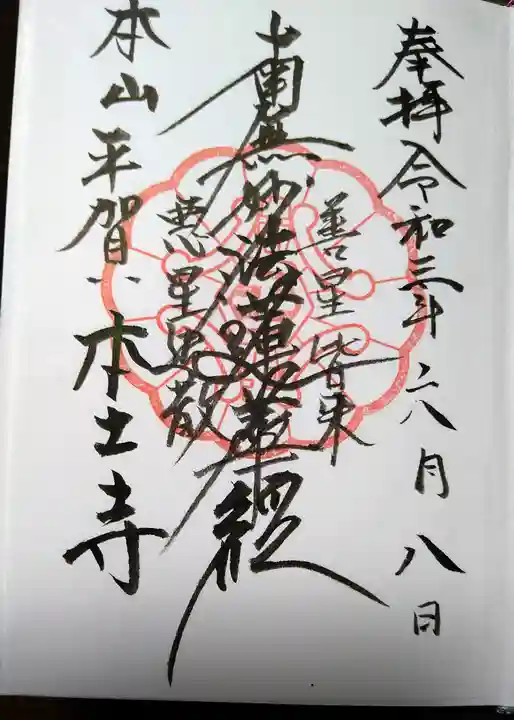 奉拝令和三年六月八日
善星皆来
南無妙法蓮華経
悪星退散
本山平賀本土寺